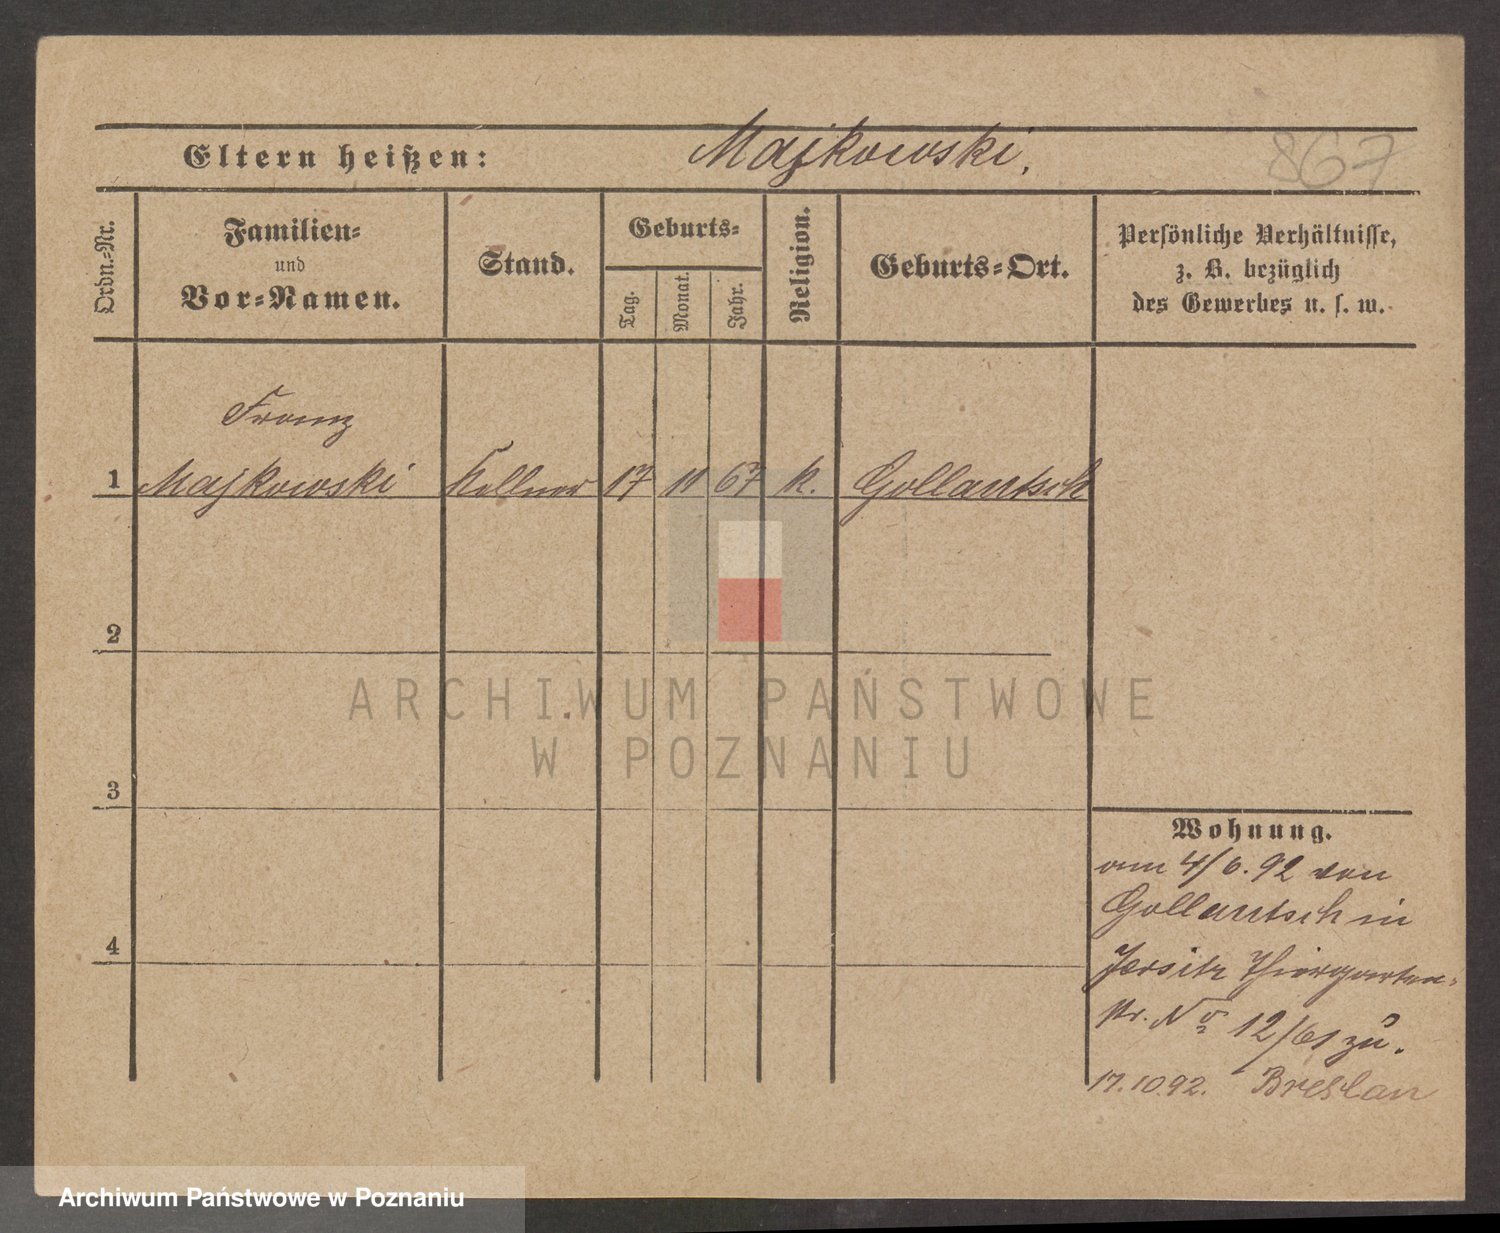 Eltern heißen: Majkowski. 867
Ordn.-Nr.
Familien-
und
Vor-Namen.
Stand.
Geburts-
Tag.
Monat.
Jahr.
Religion.
Geburts-Ort.
Persönliche Verhältnisse,
z. B. bezüglich
des Gewerbes u. s. w.
Franz
1 Majkowski Kellner 17 11 67 k. Gollantsch
2
3
4
Wohnung.
am 4/6. 92 von
Gollantsch in
Jersitz Thiergarten-
str. No 12/61 zu.
17.10.92. Breslau
ARCHIWUM PAŃSTWOWE
W POZNANIU
Archiwum Państwowe w Poznaniu